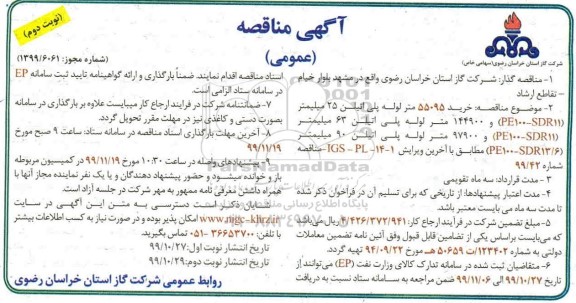 آگهی مناقصه
(عمومی)
(نوبت دوم)
شرکت گاز استان خراسان رضوی(سهامی خاص)
(شماره مجوز: ۱۳۹۹/۶۰۶۱)
۱- مناقصه گذار: شرکت گاز استان خراسان رضوی واقع در مشهد بلوار خیام
- تقاطع ارشاد
۲- موضوع مناقصه: خرید ۵۵۰۹۵ متر لوله پلی اتیلن ۲۵ میلیمتر
(PE۱۰۰-SDR۱۱) و ۱۴۴۹۰۰ متر لوله پلی اتیلن ۶۳ میلیمتر
(PE۱۰۰-SDR۱۱) و ۹۷۹۰۰ متر لوله پلی اتیلن ۹۰ میلیمتر
(PE۱۰۰-SDR۱۳/۶) مطابق با آخرین ویرایش IGS - PL -۱۴-۱-مناقصه
۹۹/۴۲
۳- مدت قرارداد: سه ماه تقویمی
۴- مدت اعتبار پیشنهادها: از تاریخی که برای تسلیم آن در فراخوان ذکر شده
تا مدت سه ماه می بایست معتبر باشد.
۵- مبلغ تضمین شرکت در فرآیند ارجاع کار: ۴/۴۲۶/۳۷۲/۹۴۱ ریال می‌باشد
که می‌بایست براساس یکی از تضامین قابل قبول وفق آئین نامه تضمین معاملات
دولتی به شماره ۱۲۳۴۰۲/ت ۵۰۶۵۹ هـ مورخ ۹۴/۰۹/۲۲ تهیه گردد.
۶- متقاضیان ثبت شده در سامانه تدارک کالای وزارت نفت (EP) می‌توانند از
تاریخ ۹۹/۱۰/۲۷ لغایت ۹۹/۱۱/۰۶ ضمن مراجعه به سامانه ستاد نسبت به دریافت
اسناد مناقصه اقدام نمایند. ضمناً بارگذاری و ارائه گواهینامه تایید ثبت سامانه EP
در سامانه ستاد الزامی است.
۷- ضمانتنامه شرکت در فرایند ارجاع کار میبایست علاوه بر بارگذاری در سامانه
بصورت دستی و کاغذی نیز در مهلت مقرر تحویل گردد.
۸- آخرین مهلت بارگذاری اسناد مناقصه در سامانه ستاد: ساعت ۹ صبح مورخ
۹۹/۱۱/۱۹
۹- پیشنهادهای واصله در ساعت ۱۰:۳۰ مورخ ۹۹/۱۱/۱۹ در کمیسیون مربوطه
باز و خوانده میشود و حضور پیشنهاد دهندگان و یا یک نفر نماینده مجاز آنها با
همراه داشتن معرفی نامه ممهور به مهر شرکت در جلسه آزاد است.
شایان ذکر است دسترسی به متن این آگهی در سایت
www.nigc-khrz.ir امکان پذیر بوده و در صورت نیاز به کسب اطلاعات بیشتر
با تلفن: ۳۶۶۵۳۷۰۰-۰۵۱ تماس بگیرید.
تاریخ انتشار نوبت اول: ۹۹/۱۰/۲۷
تاریخ انتشار نوبت دوم: ۹۹/۱۰/۲۹
روابط عمومی شرکت گاز استان خراسان رضوی